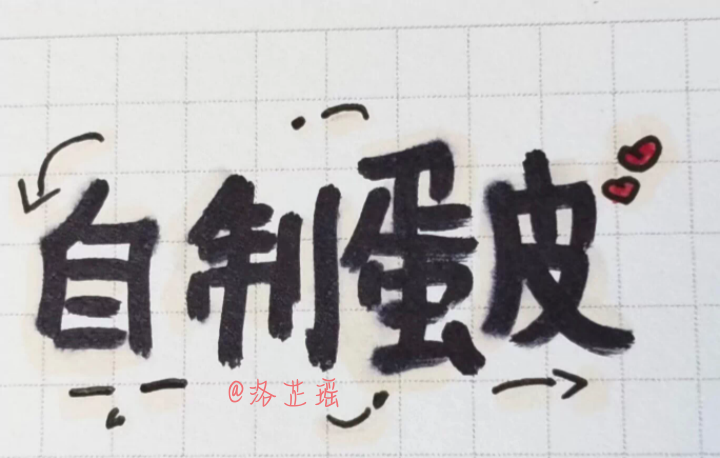 自制蛋皮
@洛芷瑶